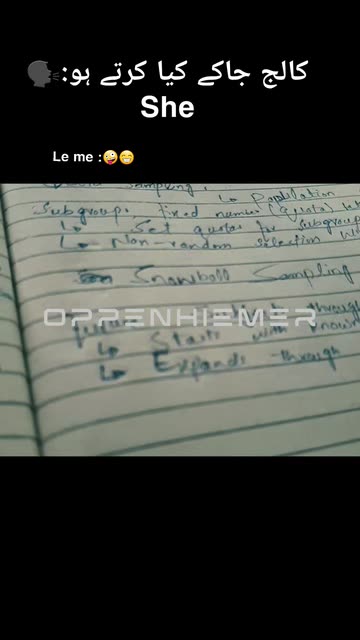 کالج جاکے کیا کرتے ہو:🗣️
She
Le me :🤪😁
Sampling.
↳ Population
Subgroup. fixed number (quota)
↳ Set quotas for subgroup
↳ Non-random selection
Snowball Sampling
OPPENHIEMER
through
↳ Starts with
↳ Expands through